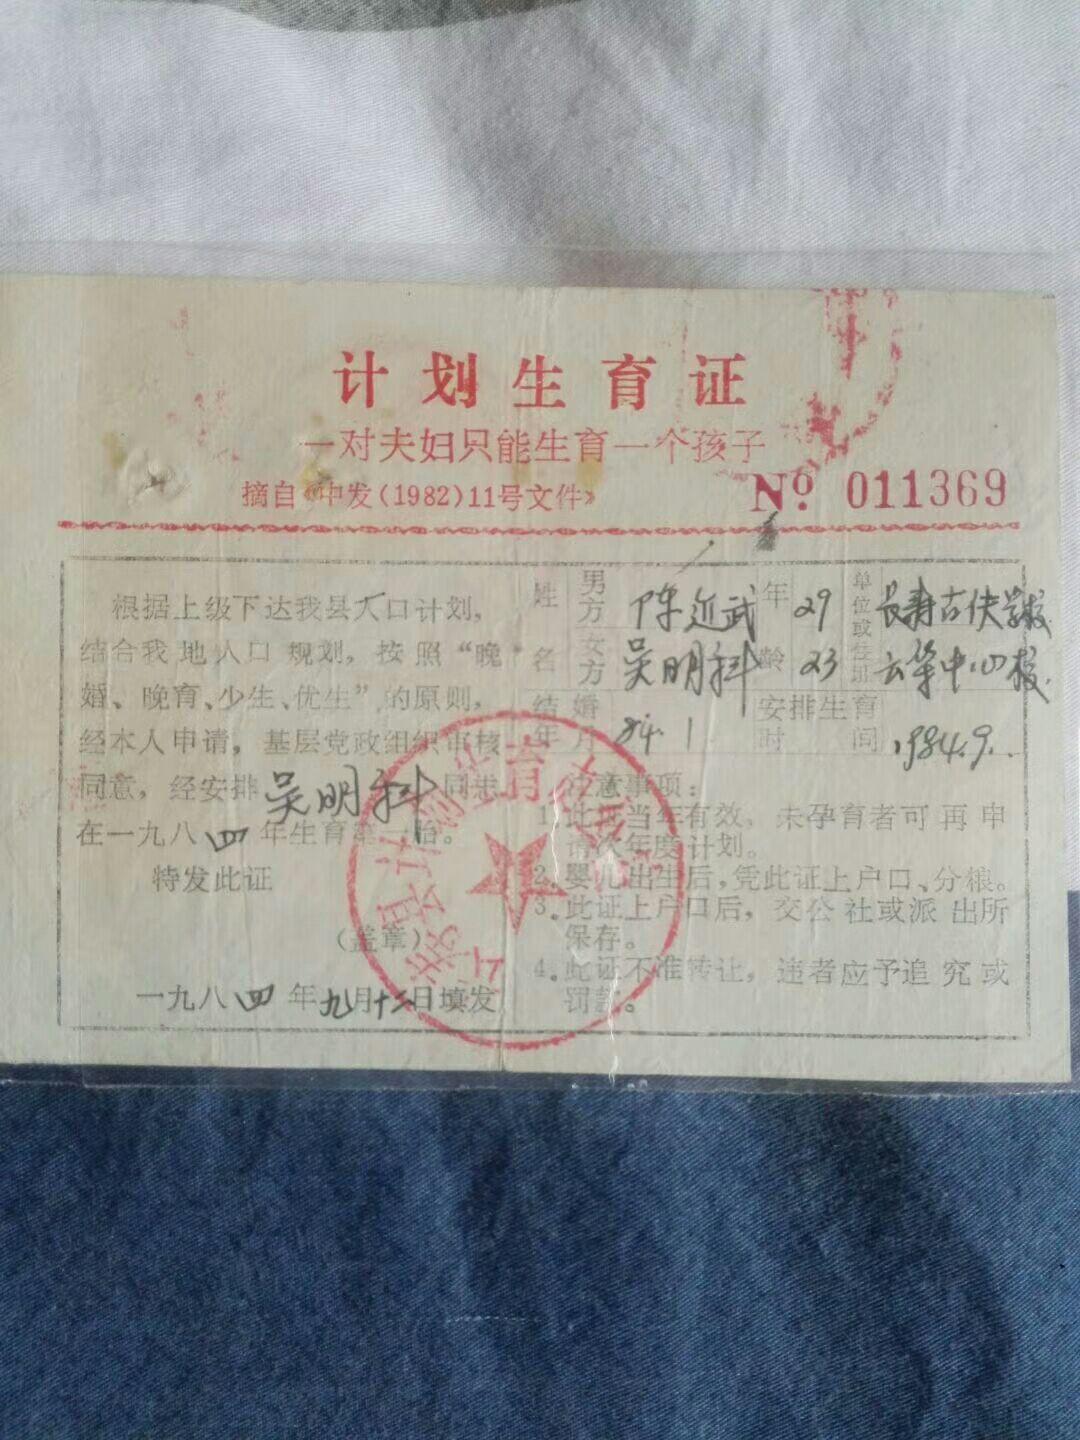 计划生育证
一对夫妇只能生育一个孩子
摘自《中发(1982)11号文件》
№ 011369
根据上级下达我县人口计划,
结合我地人口规划,按照“晚
婚、晚育、少生、优生”的原则,
经本人申请,基层党政组织审核
同意,经安排吴明科同志
在一九八四年生育第一胎。
特发此证
(盖章)
一九八四年九月十二日填发
姓名 男方 陈近武 年龄 29 单位或住址 长寿古佚学校
女方 吴明科 23 云集中心校
结婚年月 84.1 安排生育时间 1984.9.
注意事项:
1.此证当年有效,未孕育者可再申
请次年度计划。
2.婴儿出生后,凭此证上户口、分粮。
3.此证上户口后,交公社或派出所
保存。
4.此证不准转让,违者应予追究或
罚款。